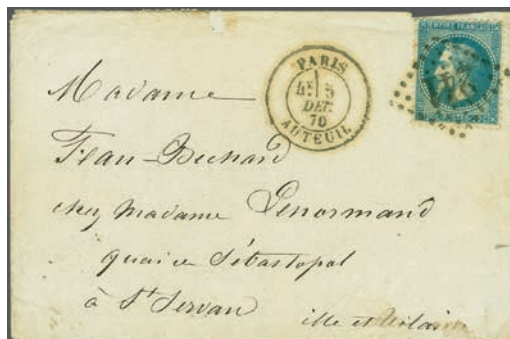 EMPIRE FRANÇAIS
PARIS
DEC
70
AUTEUIL
Madame
Jean-Buchard
chez Madame Lenormand
quai Sébastopol
à St Servan
ille et vilaine